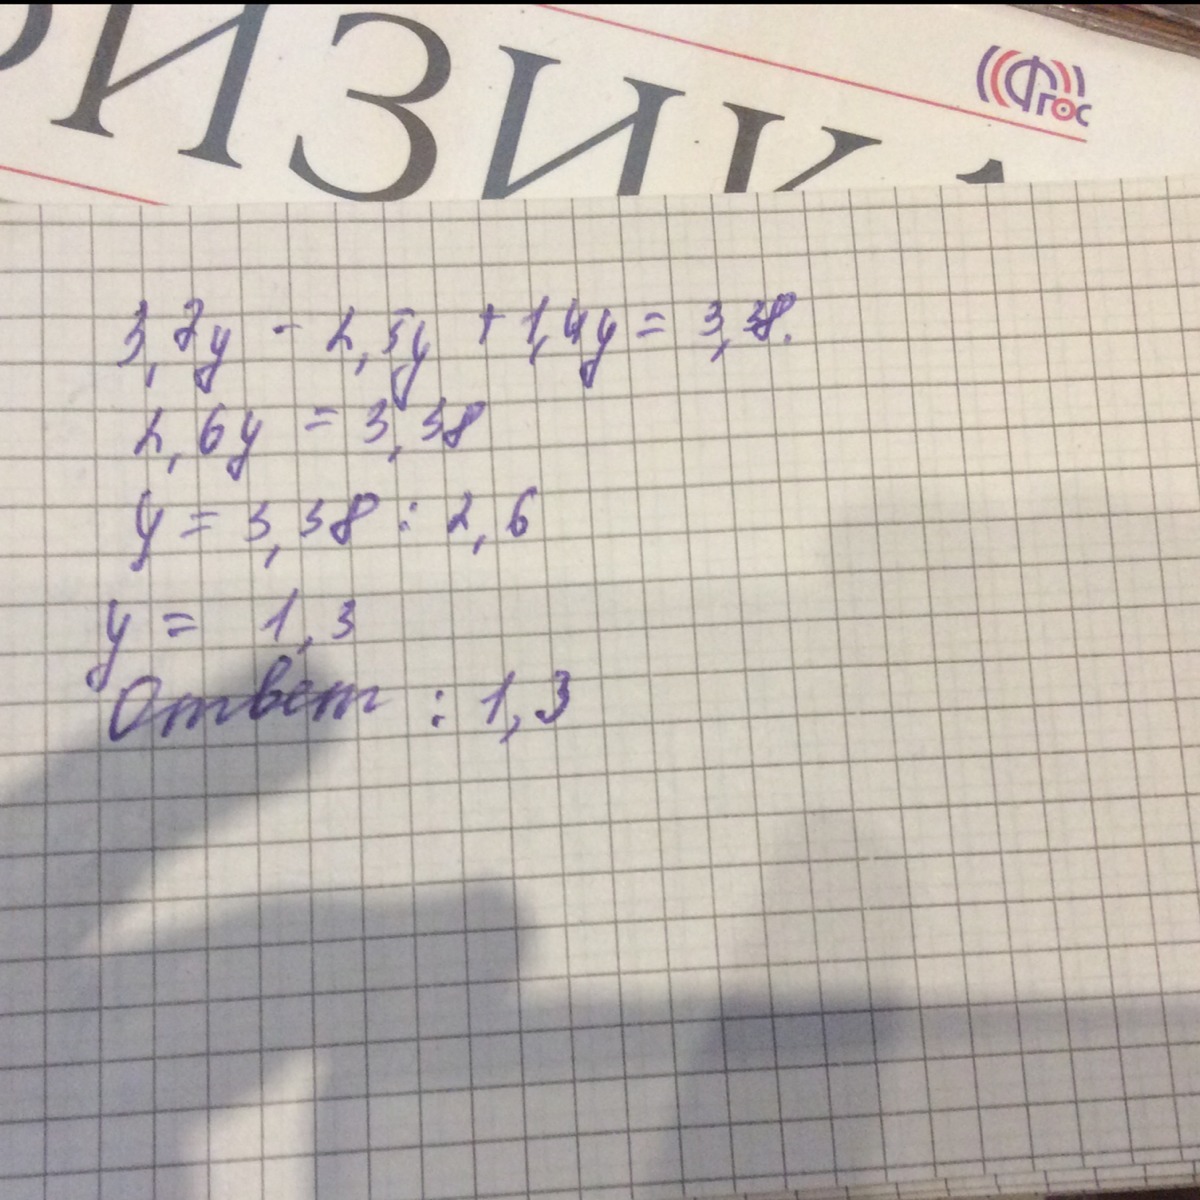 ФИЗИКА
ФГОС
3,7y - 2,5y + 1,4y = 3,38.
2,6y = 3,38
y = 3,38 : 2,6
y = 1,3
Ответ : 1,3